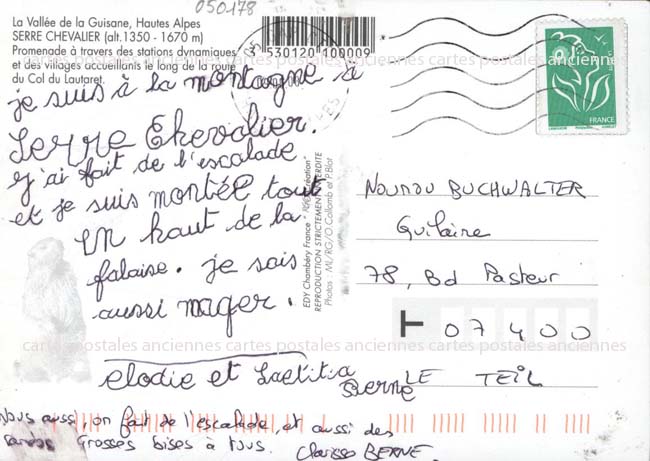 050178
La Vallée de la Guisane, Hautes Alpes
SERRE CHEVALIER (alt.1350 - 1670 m)
Promenade à travers des stations dynamiques
et des villages accueillants le long de la route
du Col du Lautaret.
3 530120 100009
FRANCE
je suis à la montagne à
Serre Chevalier.
j'ai fait de l'escalade
et je suis montée tout
en haut de la
falaise. je sais
aussi nager.
elodie et Laetitia
Berne
Nous aussi, on fait de l'escalade, et aussi des
randos Grosses bises à tous. Clarisse BERNE
EDY Chambéry France
REPRODUCTION STRICTEMENT INTERDITE
Photos : ML/RG/O Collomb et P.Blot
NOUNOU BUCHWALTER
Guilaine
78, Bd Pasteur
07400
LE TEIL
cartes postales anciennes cartes postales anciennes cartes postales anciennes
cartes postales anciennes cartes postales anciennes cartes postales anciennes